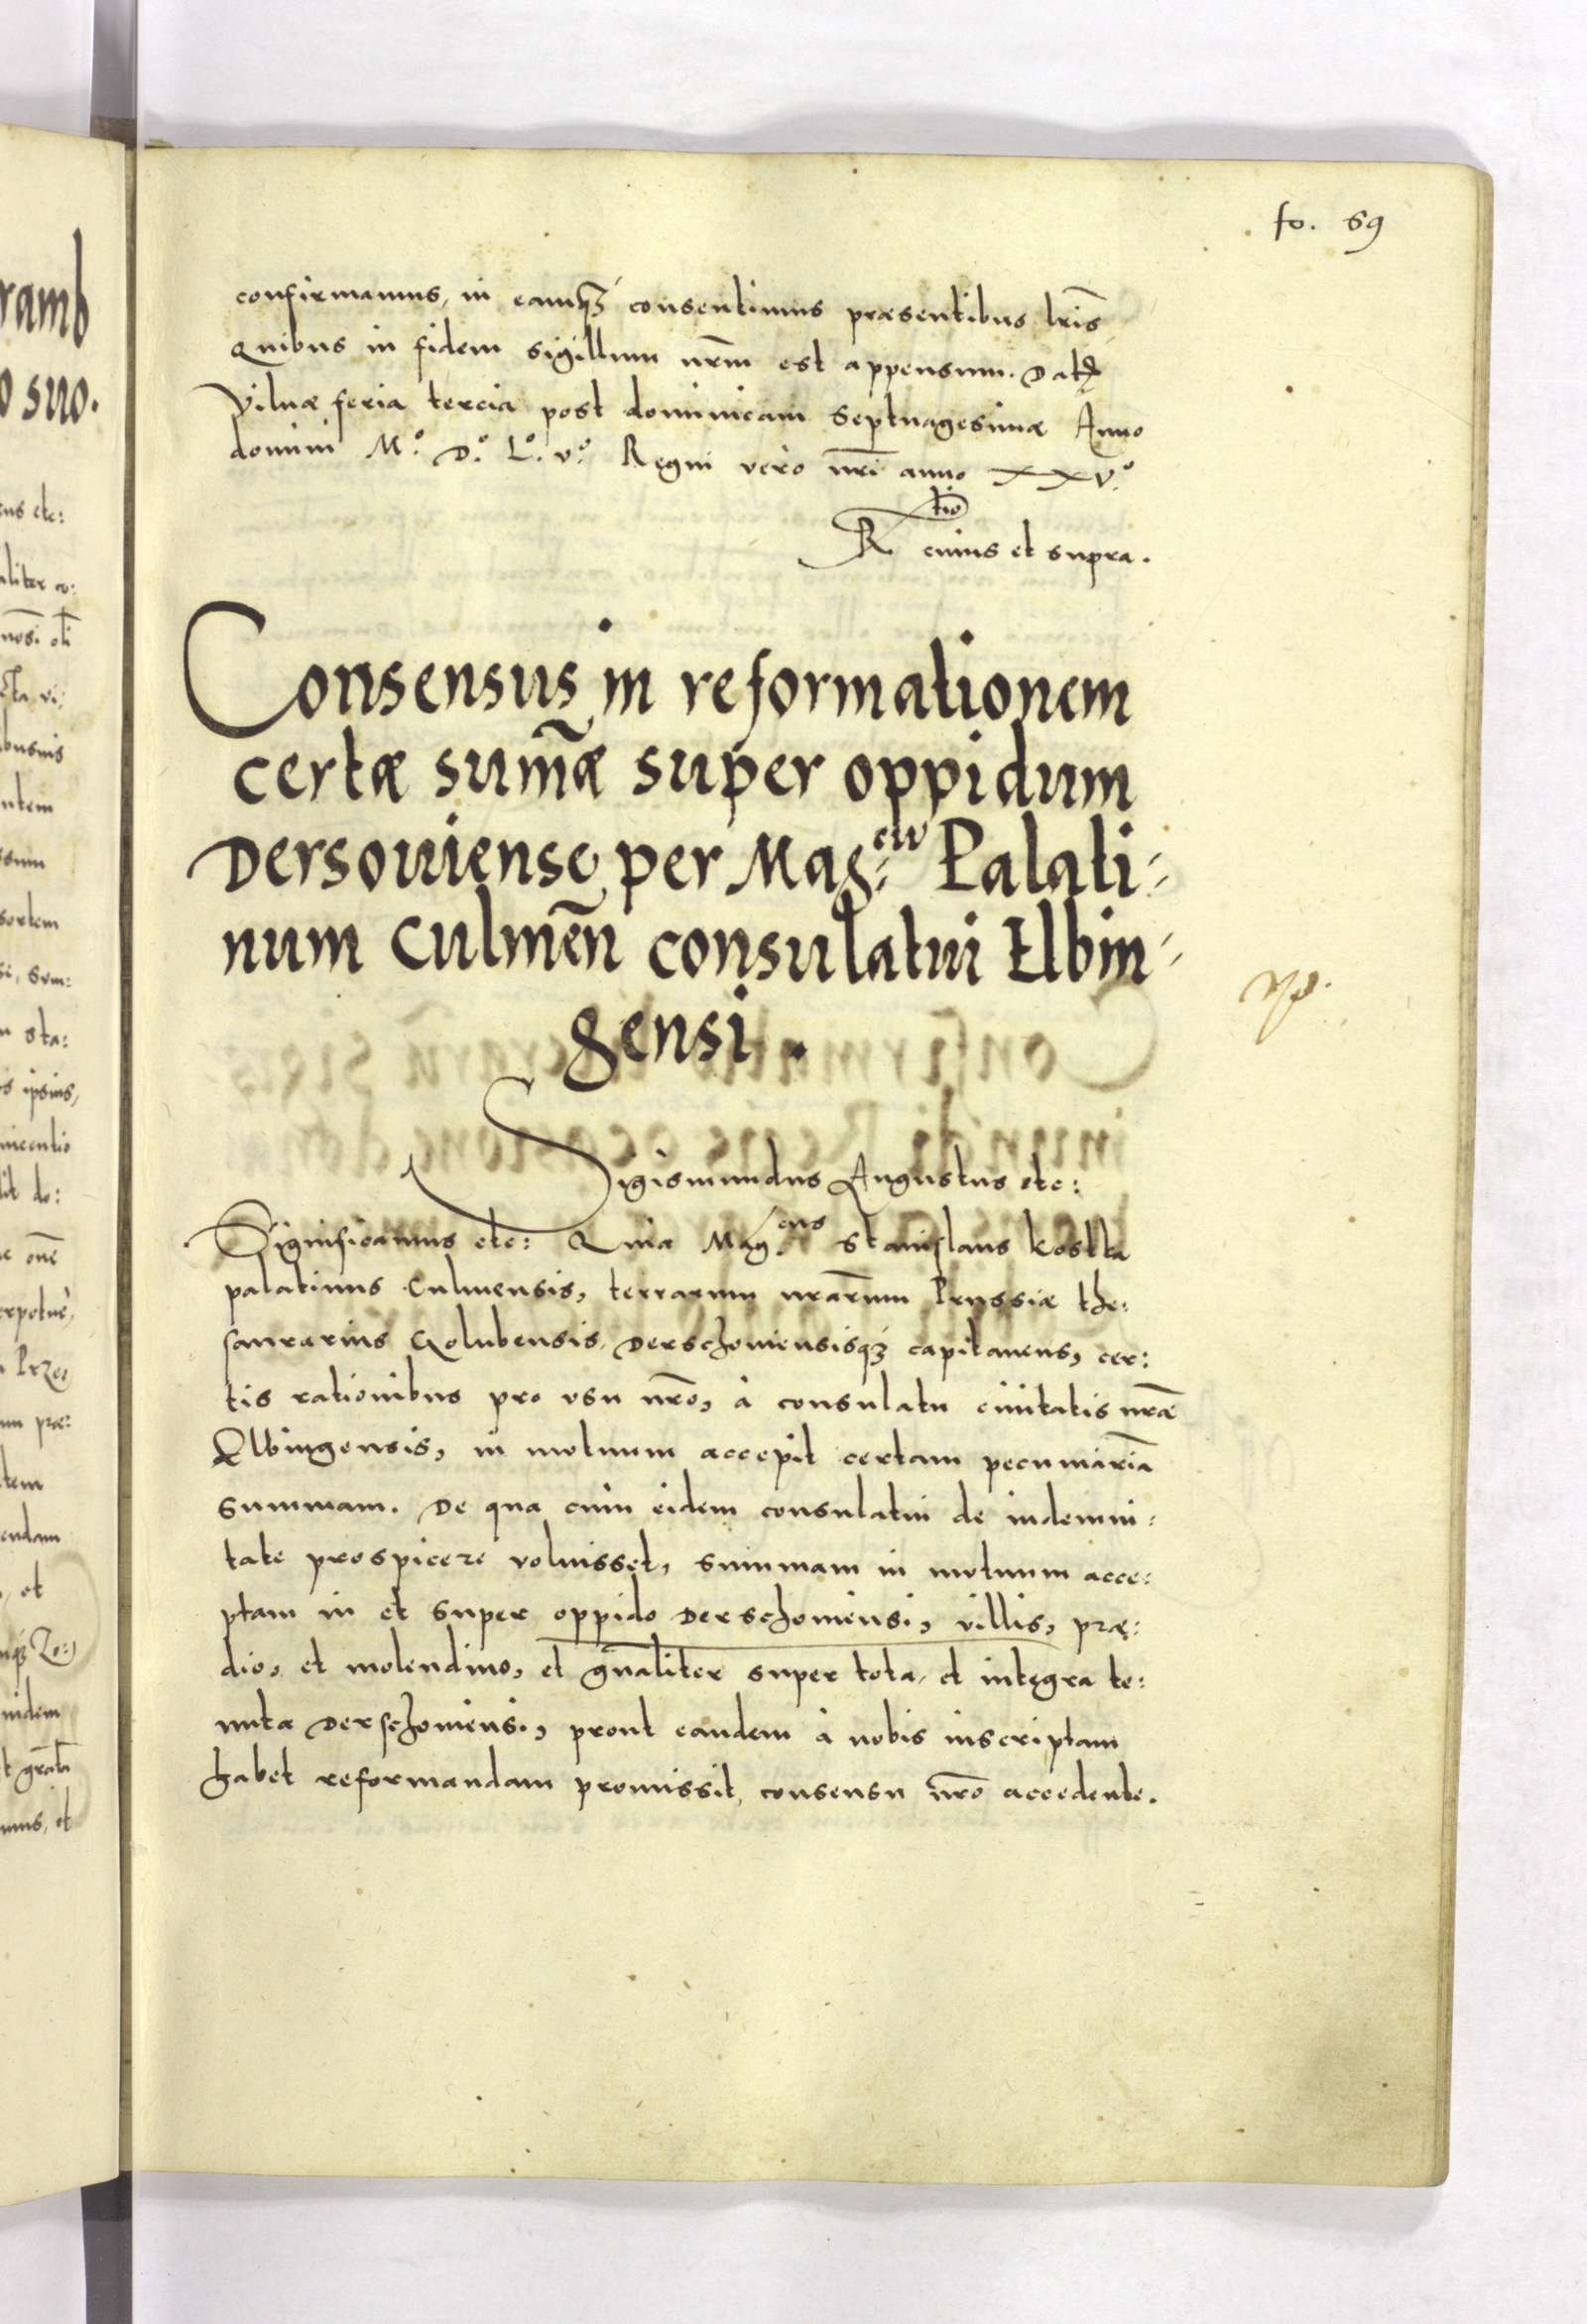 fo. 59
confirmamus, in eamq₃ consentimus præsentibus lr̃is
Quibus in fidem sigillum nr̃m est appensum. Dat̃
Vilnæ feria tercia post dominicam Septuagesimæ Anno
domini M.º D.º L.º v.º Regni vero nr̃i anno XXV.º
R tio cuius et supra.
Consensus in reformationem
certæ sum̃æ super oppidum
Dersouiense per Mag:cũ Palati-
num Culmeñ consulatui Elbin-
gensi.
Sigismundus Augustus etc:
Significamus etc: Quia Mag.cus Stanislaus Kostka
palatinus Culmensis, terrarum nr̃arum Prussiæ the:
saurarius Golubensis, Derschouiensisq₃ capitaneus, cer:
tis rationibus pro vsu nr̃o, à consulatu ciuitatis nr̃æ
Elbingensis, in mutuum accepit certam pecuniariã
summam. De qua cum eidem consulatui de indemni:
tate prospicere voluisset, summam in mutuum acce:
ptam in et super oppido Derschouiensi, villis, præ:
dio, et molendino, et gñaliter super tota, et integra te:
nuta Derschouiensi, prout eandem à nobis inscriptam
habet reformandam promissit, consensu nr̃o accedente.